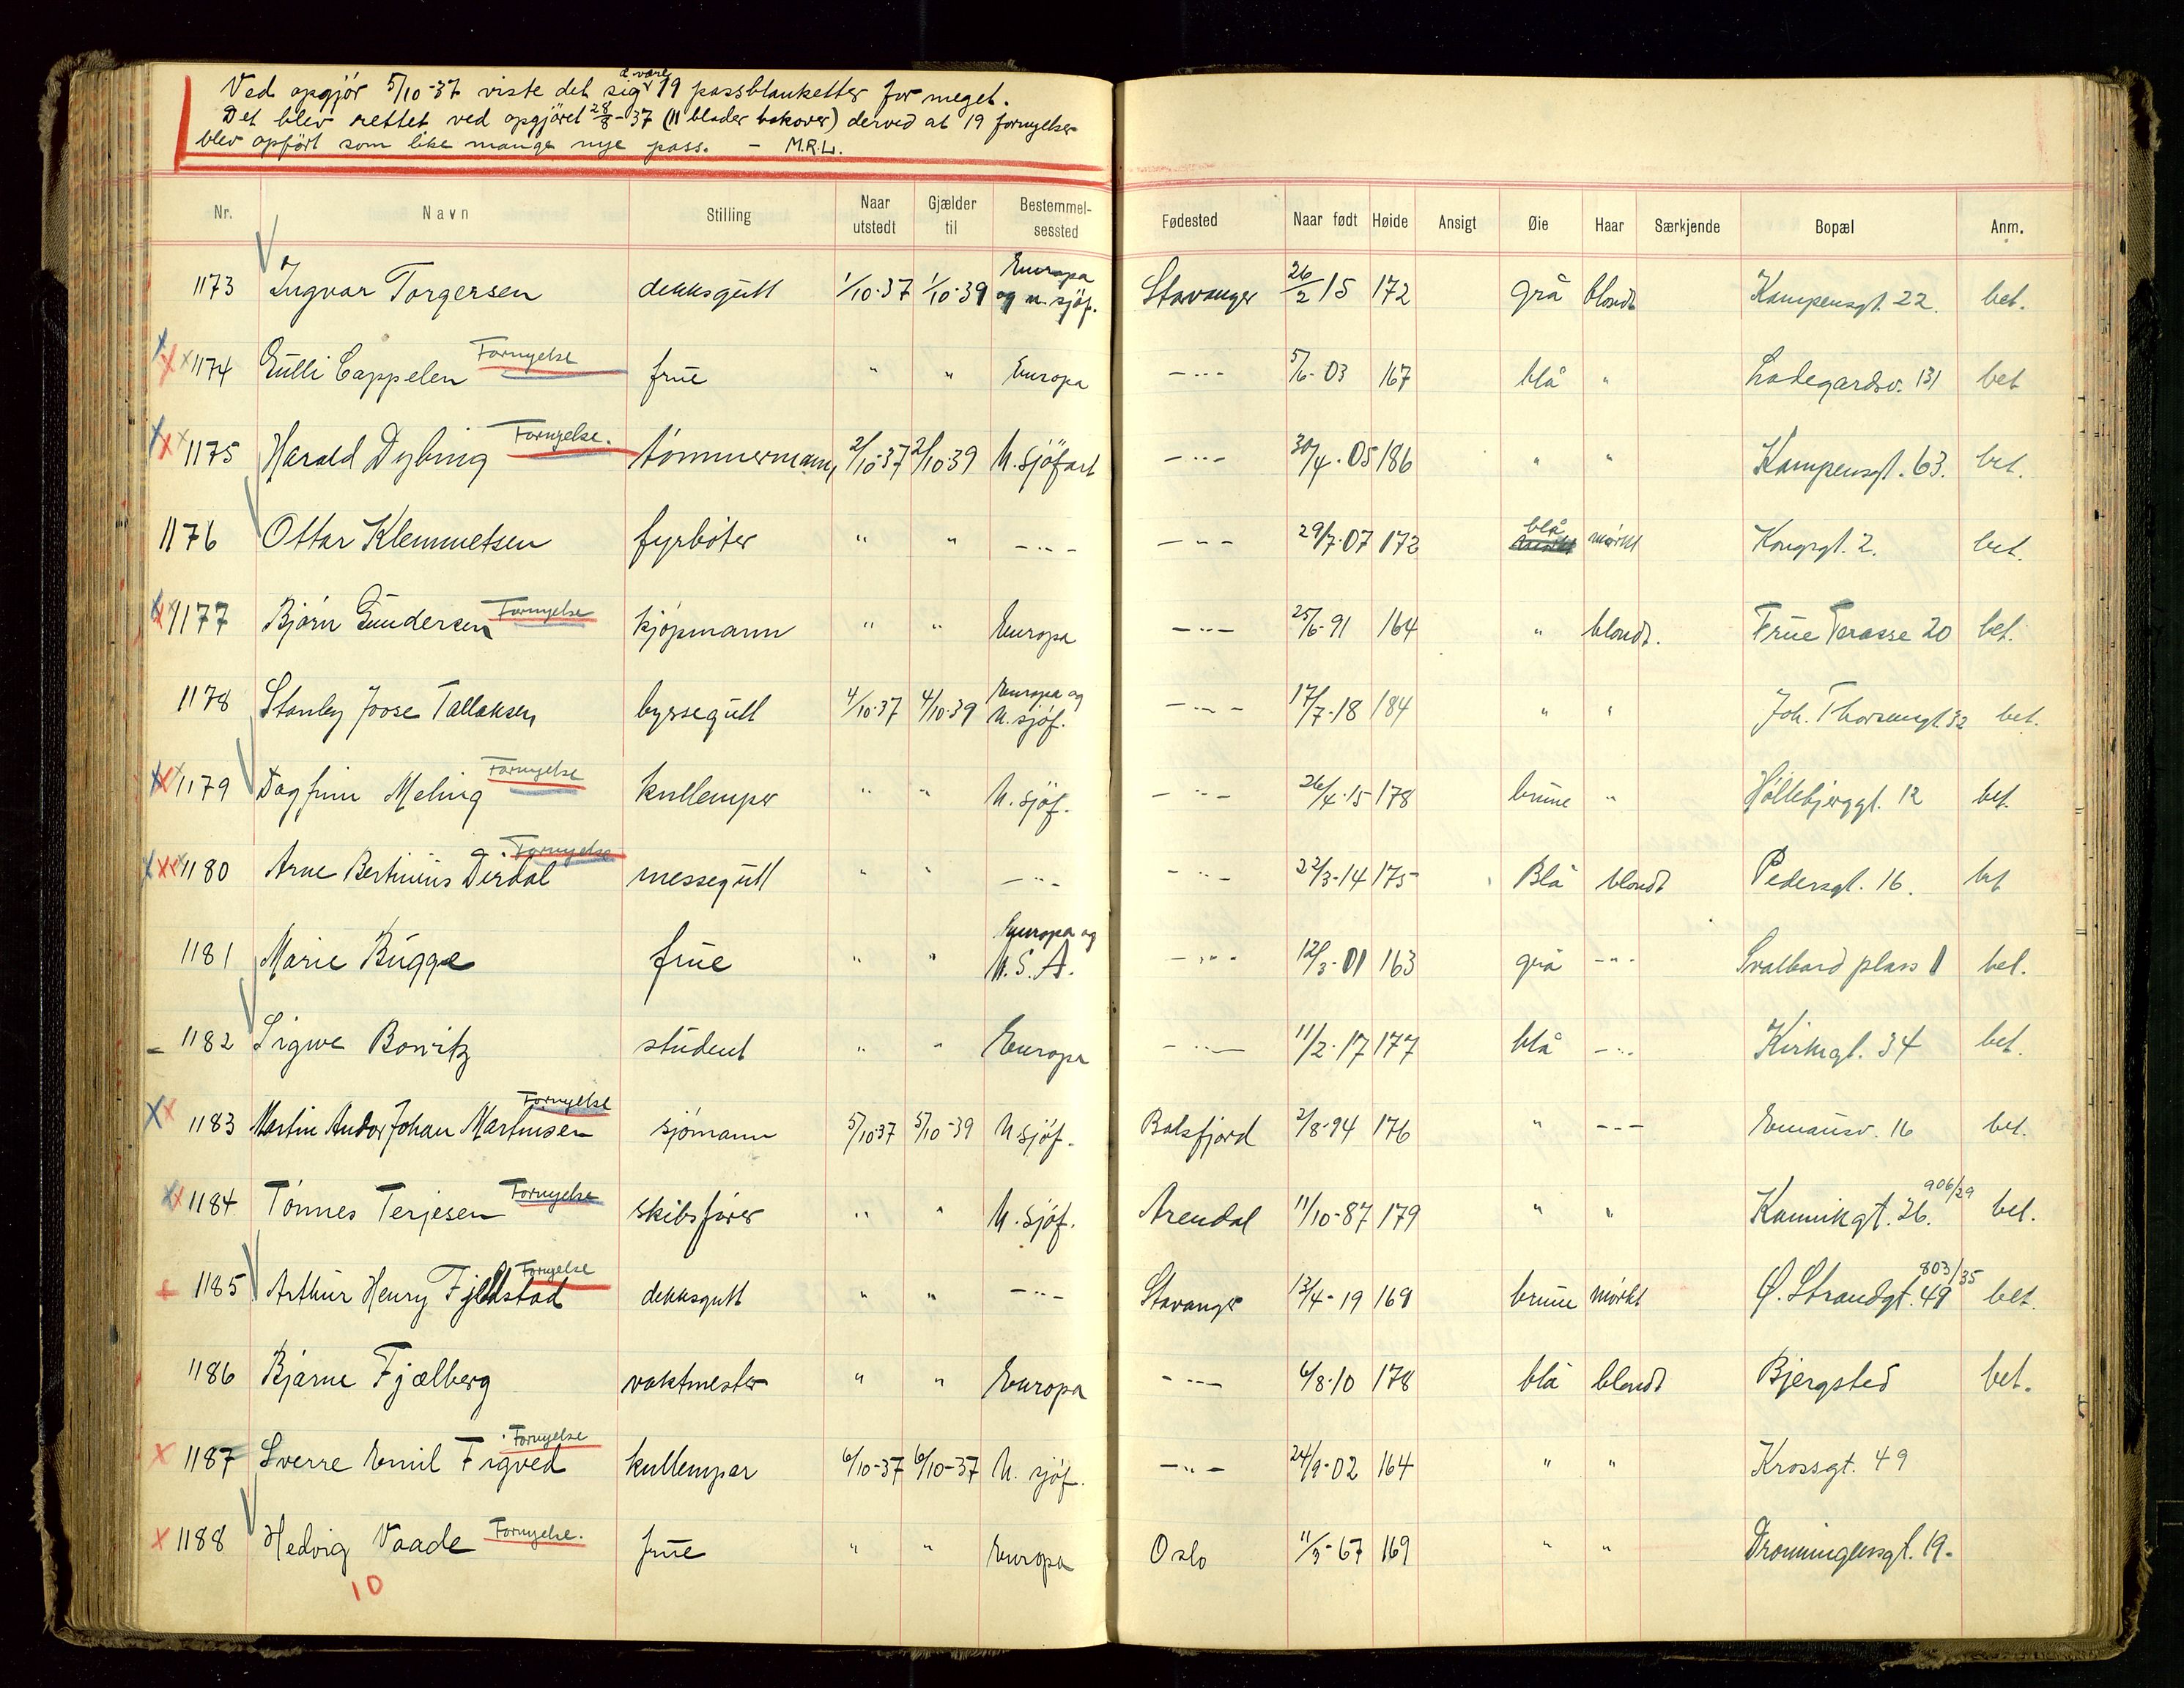 Ved opgjör 5/10-37 viste det sig å være 19 passblanketter for meget.
Det blev rettet ved opgjöret 28/8-37 (11 blader bakover) derved at 19 fornyelser
blev opfört som like mange nye pass. – M.R.L.
Nr. Navn Stilling Naar utstedt Gjælder til Bestemmel-sessted Fødested Naar født Høide Ansigt Øie Haar Særkjende Bopæl Anm.
1173 Ingvar Torgersen dekksgutt 1/10-37 1/10-39 Europa og u. sjöf. Stavanger 26/2 15 172 grå blondt Kampensgt. 22. bet.
1174 Gulli Cappelen Fornyelse frue " " Europa -"- 5/6-03 167 blå " Ladegardsv. 131 bet
1175 Harald Dybing Fornyelse. tömmermann 2/10-37 2/10-39 U. sjöfart -"- 30/4-05 186 " " Kampensgt. 63. bet.
1176 Ottar Klemmetsen fyrböter " " -"- -"- 29/7-07 172 blå mörkt Kongsgt. 2. bet.
1177 Björn Gundersen Fornyelse kjöpmann " " Europa -"- 25/6-91 164 " blondt. Frue Terasse 20 bet.
1178 Stanley Joose Tallaksen byssegutt 4/10-37 4/10-39 Europa og U. sjöf. -"- 17/7-18 184 " " Joh. Thorsensgt 32 bet.
1179 Dagfinn Meling Fornyelse kullemper " " U. sjöf. -"- 26/4-15 178 brune " Höllebjerggt. 12 bet.
1180 Arne Bertinius Dirdal Fornyelse messegutt " " -"- -"- 22/3-14 175 Blå blondt Pedersgt. 16. bet
1181 Marie Bugge frue " " Europa og U.S.A. -"- 12/3-01 163 grå -"- Svalbard plass 1 bet.
1182 Sigwe Bowitz student " " Europa -"- 11/2-17 177 blå -"- Kirkegt. 34 bet.
1183 Martin Andor Johan Martinsen Fornyelse sjömann 5/10-37 5/10-39 U. sjöf. Balsfjord 2/8-94 176 " -"- Emausv. 16 bet.
1184 Tönnes Terjesen Fornyelse skibsförer " " U. sjöf. Arendal 11/10-87 179 " " Kannikgt. 26. 906/29 bet.
1185 Arthur Henry Fjeldstad Fornyelse dekksgutt " " -"- Stavanger 13/4-19 169 brune mörkt Ø. Strandgt. 49 803/35 bet.
1186 Bjarne Fjælberg vaktmester " " Europa -"- 6/8-10 178 blå blondt Bjergsted bet.
1187 Sverre Emil Figved Fornyelse kullemper 6/10-37 6/10-37 U. sjöf. -"- 24/9-02 164 " " Krossgt. 49
1188 Hedvig Vaade Fornyelse. frue " " Europa Oslo 11/3-67 169 " " Dronningensgt. 19.
10